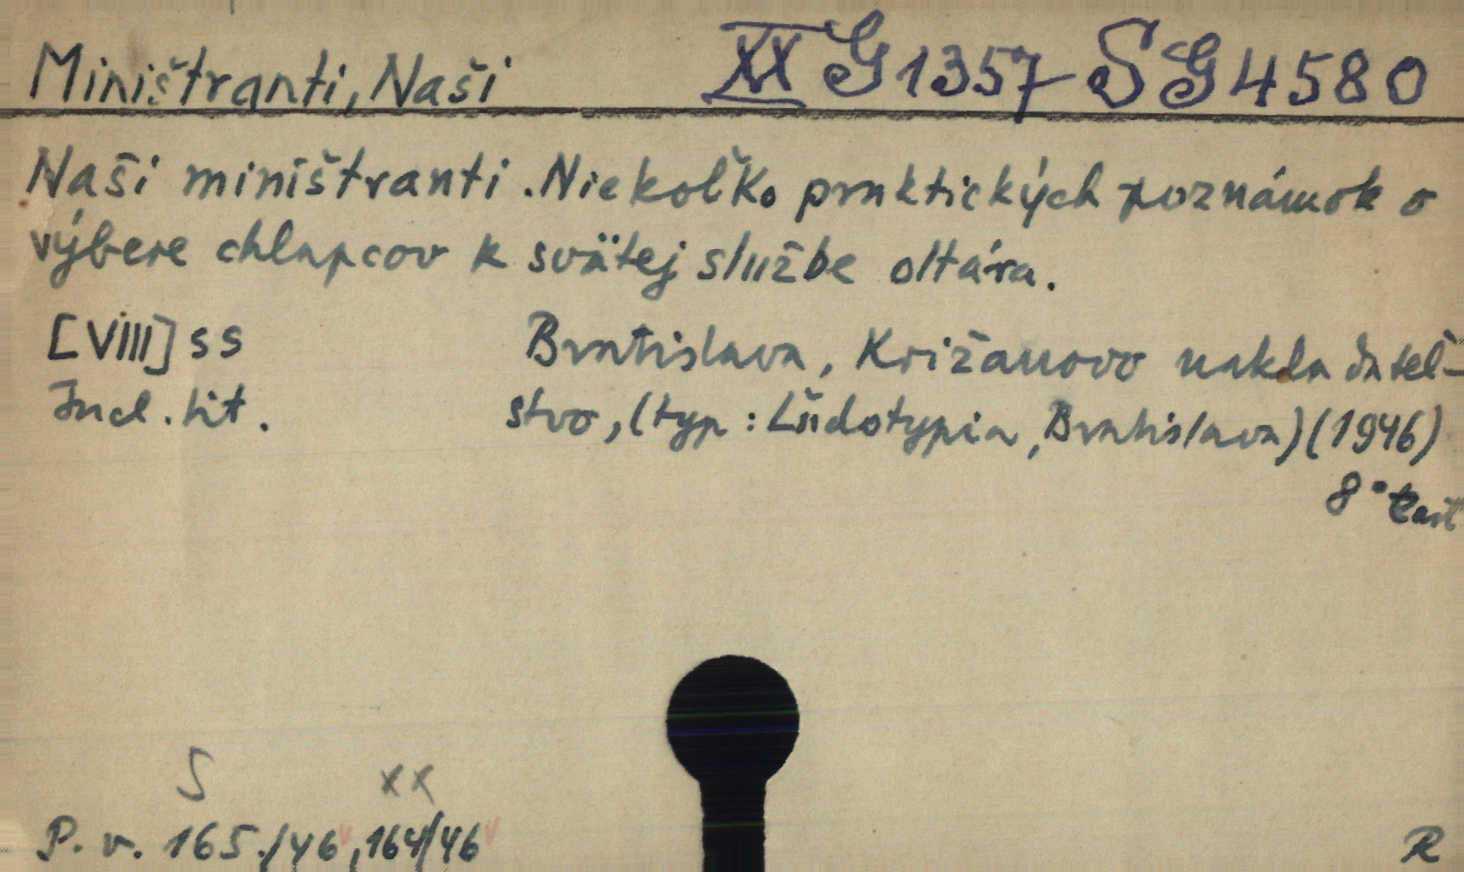 Miništranti, Naši XX G 1357 S G 4580
Naši miništranti. Niekoľko praktických poznámok o
výbere chlapcov k svätej službe oltára.
[VIII] ss Bratislava, Križanovo nakladateľ-
Incl. tit. stvo, (typ: Ľudotypia, Bratislava) (1946)
8°
S XX
P. v. 165./46, 164/46 R